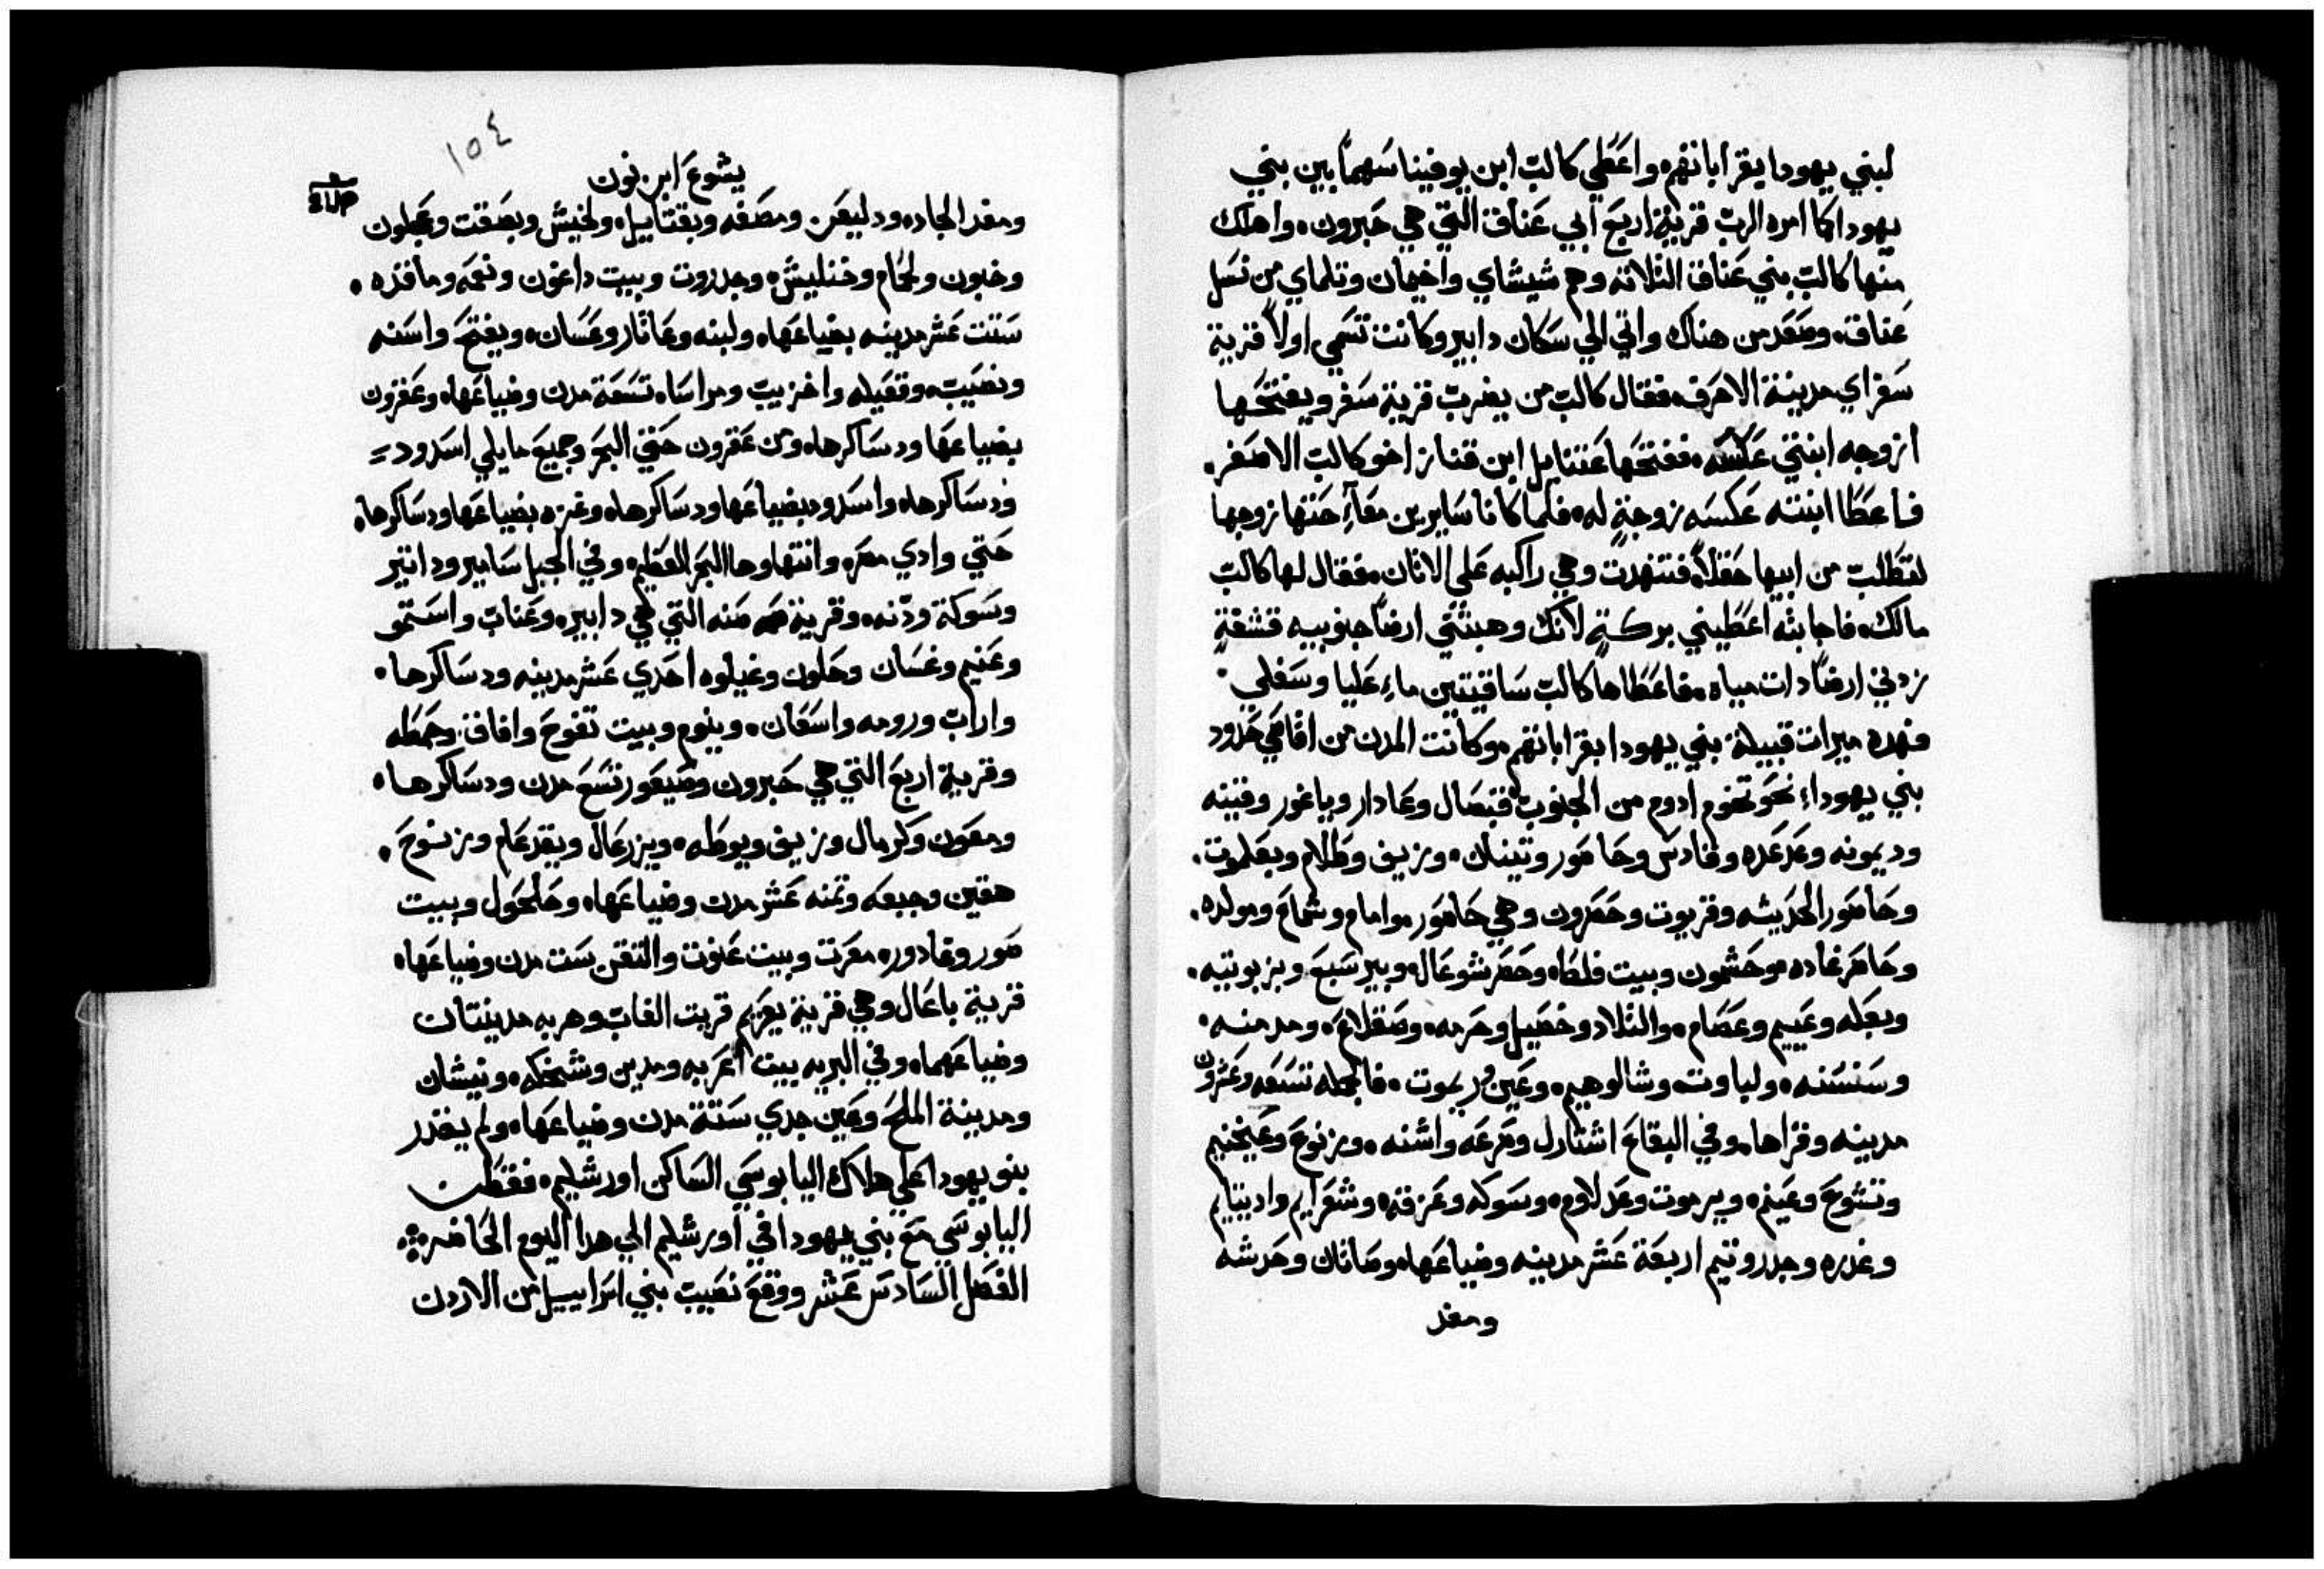 لبني يهودا بقراباتهم. واعطي كالب ابن يوفينا سهماً بين بني
يهودا كما امره الرب قرية اربع ابي عناق التي هي حبرون. واهلك
منها كالب بني عناق الثلاثه وهم شيشاي واخيمان وتلماي من نسل
عناق. وصعد من هناك واتي الي سكان دابير وكانت تسمي اولاً قرية
سفر اي مدينة الاحرف. فقال كالب من يضرب قرية سفر ويفتحها
ازوجه ابنتي عكسه. ففتحها عتنايل ابن قناز اخو كالب الاصغر.
فاعطا ابنته عكسه زوجةٍ له. فلما كانا سايرين معاً حثها زوجها
لتطلب من ابيها حقلاً. فتنهدت وهي راكبه علي الاتان. فقال لها كالب
مالك. فاجابته اعطيني بركةٍ لانك وهبتني ارضاً جنوبيه قشفةٍ
زدني ارضاً دات مياه. فاعطاها كالب ساقيتين ماءٍ عليا وسفلي.
فهده ميرات قبيلة بني يهودا بقراباتهم. وكانت المدن من اقاصي حدود
بني يهوداء نحو تخوم ادوم من الجنوب قبصال وعادار وياغور وقينه
وديمونه وعدعده وقادس وحاصور وتينان. وزيف وطلام وبعلوت.
وحاصور الحديثه وقريوت وحصرون وهي حاصور. وامام وشماع ومولده.
وحاصر غاده. وحشمون وبيت فلطا. وحصر شوعال. وبير سبع وبزيوتيه.
وبعله وعييم وعصام. والتلاد وخصيل وحرمه. وصقلاغ. ومدمنه.
وسنسنه. ولباوت. وشالوهيم. وعين وريموت. فالجمله تسعه وعشرون
مدينه وقراها. وفي البقاع اشتاول وصرعه واشنه. وزنوح وعيجنيم
وتنفوح وعينم. ويرموت وعدلام. وسوكه وعزقه. وشعرايم وادينايم
وغدره وجدروتيم اربعة عشر مدينه وضياعها. وصانان وحدشه
ومغد
١٥٤
يشوع ابن نون
ومغدالجاد. ودليعن ومصفه ويقتاييل. ولخيش وبصقت وعجلون
وخبون ولحمام وختليش. وجدروت وبيت داغون ونعمه وماقده.
ستت عشر مدينه بضياعها. ولبنه وعاتار وعسان. ويفتح واسنه
ونصيب. وقعيله واخزيب ومراسا. تسعة مدن وضياعها. وعقرون
بضياعها ودساكرها. ومن عقرون حتي البحر وجميع ما يلي اسدود
ودساكرها. واسدود بضياعها ودساكرها. وغزه بضياعها ودساكرها.
حتي وادي مصر. وانتهاوها البحر العظيم. وفي الجبل سامير وداتير
وسوكة ودنه. وقرية صنه التي هي دابير. وعناب واستمو
وعنيم وغسان وحلون وغيلوه احدي عشر مدينه ودساكرها.
واراب ورومه واسعان. وينوم وبيت تفوح وافاق. وحمطه
وقرية اربع التي هي حبرون وصيعور تسع مدن ودساكرها.
ومعون وكرمال وزيف ويوطه. ويزرعال ويقدعام وزنوح.
هقين وجبعه وتمنه عشر مدن وضياعها. وحلحول وبيت
صور وغادور. معرت وبيت عنوت والتقن ست مدن وضياعها.
قرية باعال وهي قرية يعريم قريت الغاب وهربه مدينتان
وضياعهما. وفي البريه بيت اعربه ومدين وشخكه. ونيشان
ومدينة الملح وعين جدي ستة مدن وضياعها. ولم يقدر
بنو يهودا علي هلاك اليابوسي الساكن اورشليم. فقطن
اليابوسي مع بني يهودا في اورشليم الي هدا اليوم الحاضر
الفصل السادس عشر ووقع نصيب بني اسراييل من الاردن